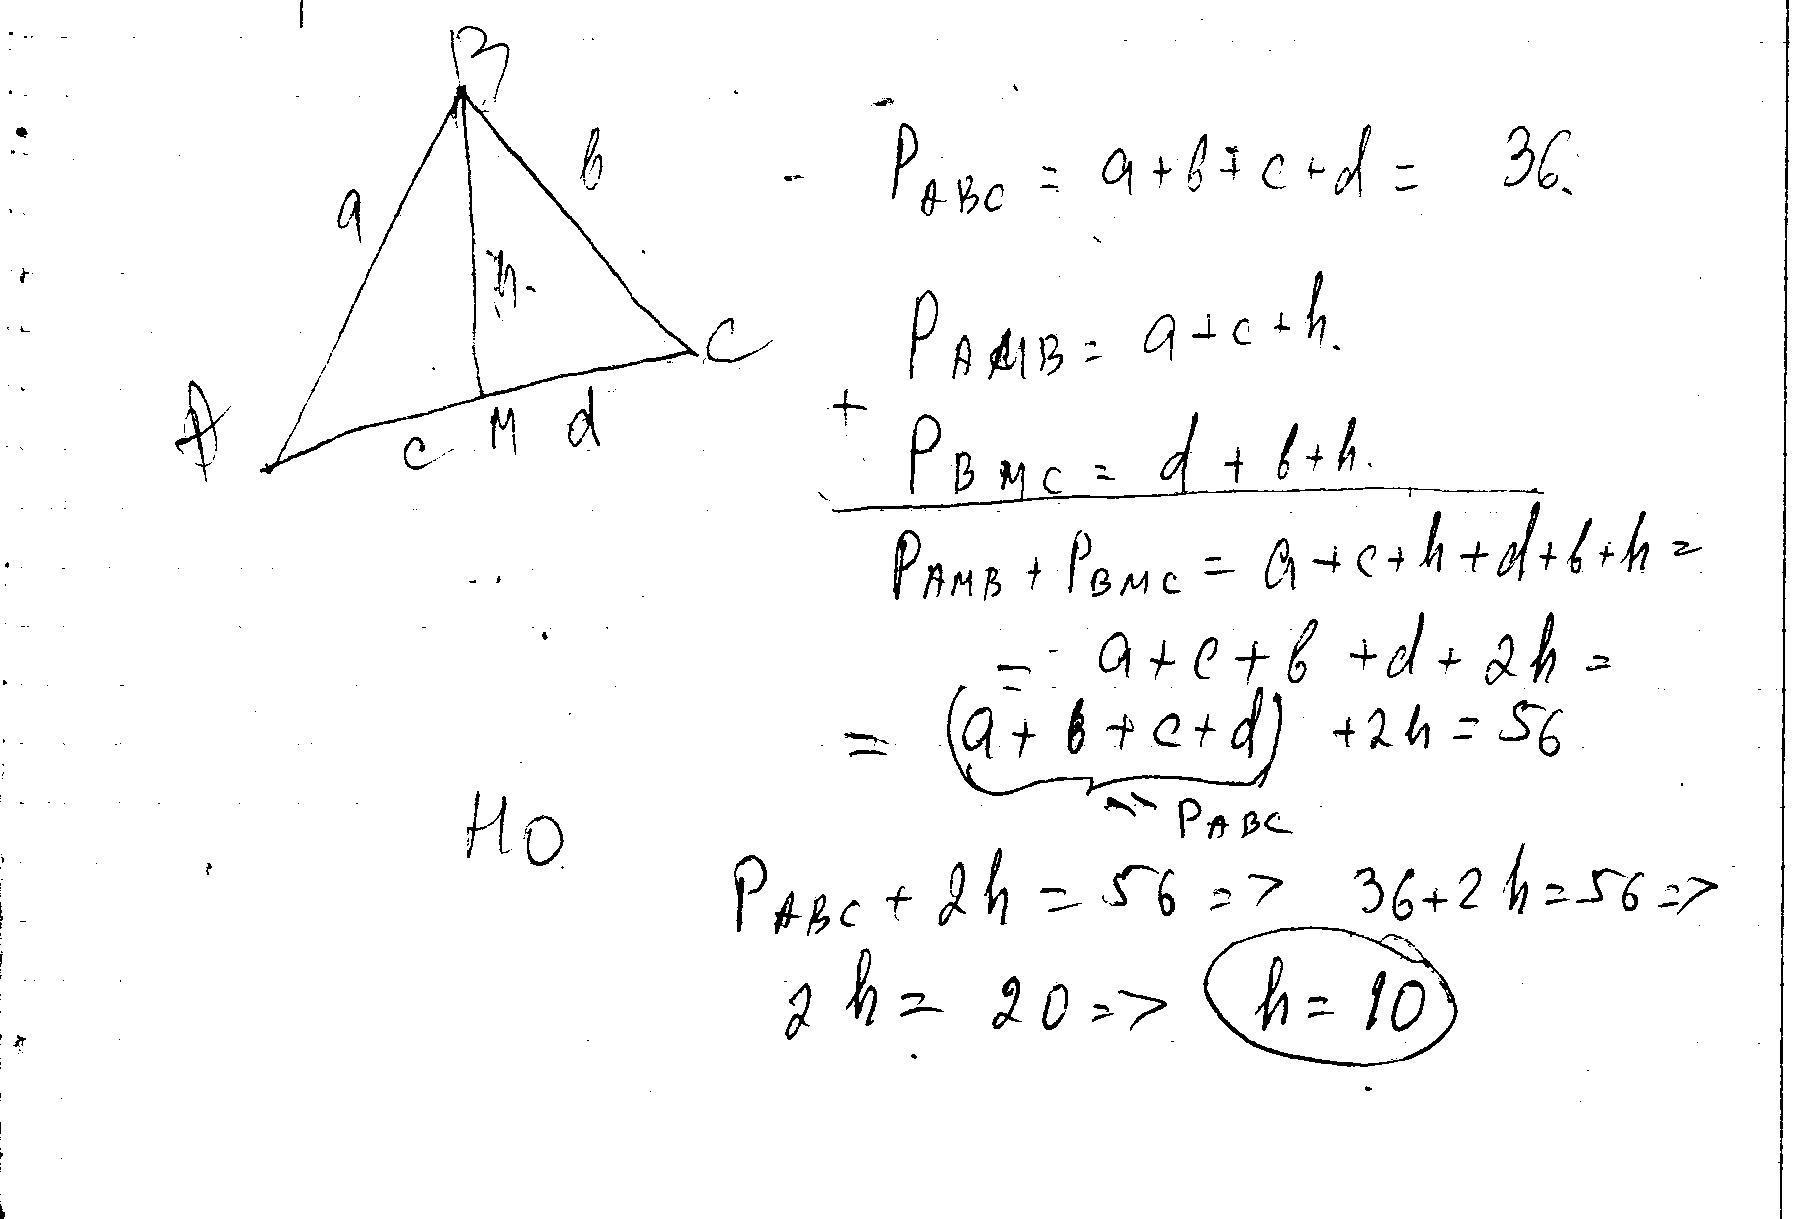 B
a
b
h.
C
A
c M d
P ABC = a+b+c+d = 36.
P AMB = a+c+h.
+
P BMC = d+b+h.
P AMB + P BMC = a+c+h+d+b+h =
= a+c+b+d+2h =
= (a+b+c+d) +2h = 56
= P ABC
но
P ABC + 2h = 56 => 36+2h=56 =>
2h = 20 => h = 10